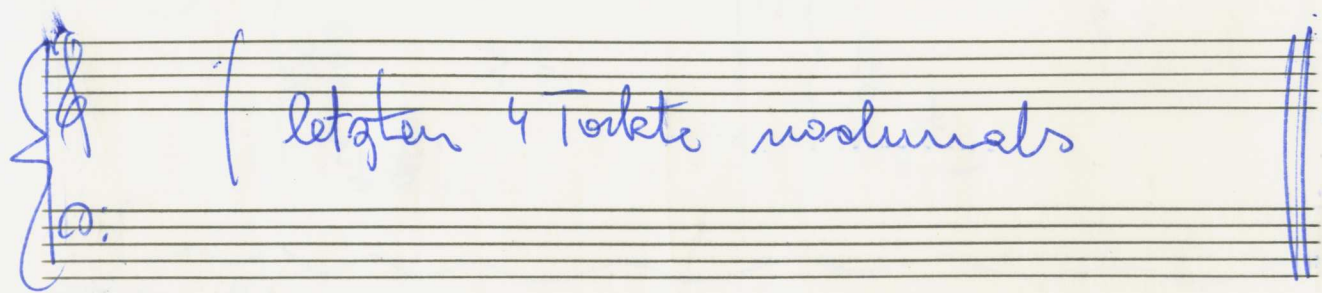 letzten 4 Takte nochmals